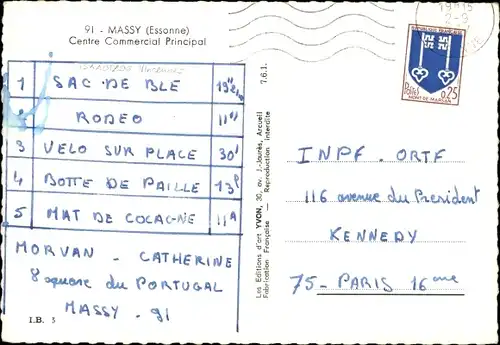 91 - MASSY (Essonne)
Centre Commercial Principal
1 SAC DE BLE
2 RODEO 11
3 VELO SUR PLACE 30'
4 BOTTE DE PAILLE 13P
5 MAT DE COCAGNE 11A
MORVAN - CATHERINE
8 square du PORTUGAL
MASSY - 91
I.B. 5
7.6.1.
Les Editions d'art YVON, 30, av. J.-Jaurès, Arcueil
Fabrication Française — Reproduction interdite
19H15
2-9
REPUBLIQUE FRANÇAISE
POSTES 0,25
MONT-DE-MARSAN
INPF. ORTF
116 avenue du President
KENNEDY
75 - PARIS 16ème